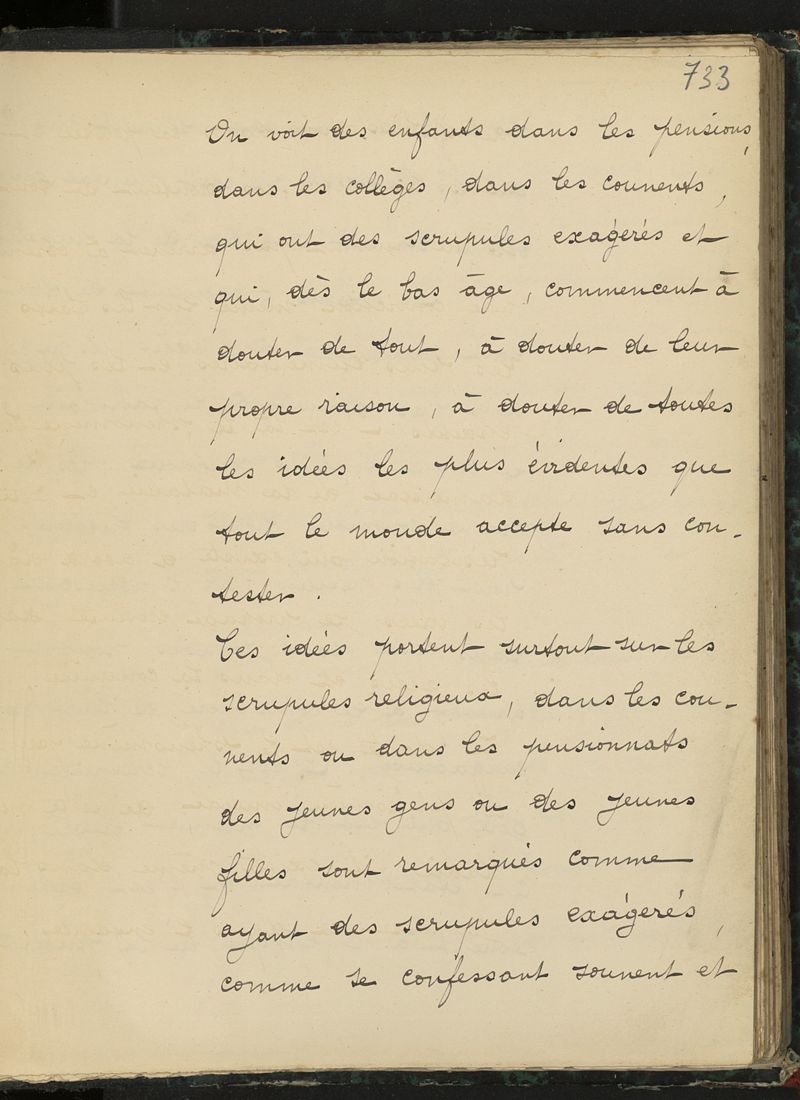 733
On voit des enfants dans les pensions,
dans les collèges, dans les couvents,
qui ont des scrupules exagérés et
qui, dès le bas âge, commencent à
douter de tout, à douter de leur
propre raison, à douter de toutes
les idées les plus évidentes que
tout le monde accepte sans con-
tester.
Ces idées portent surtout sur les
scrupules religieux, dans les cou-
vents ou dans les pensionnats
des jeunes gens ou des jeunes
filles sont remarqués comme
ayant des scrupules exagérés,
comme se confessant souvent et